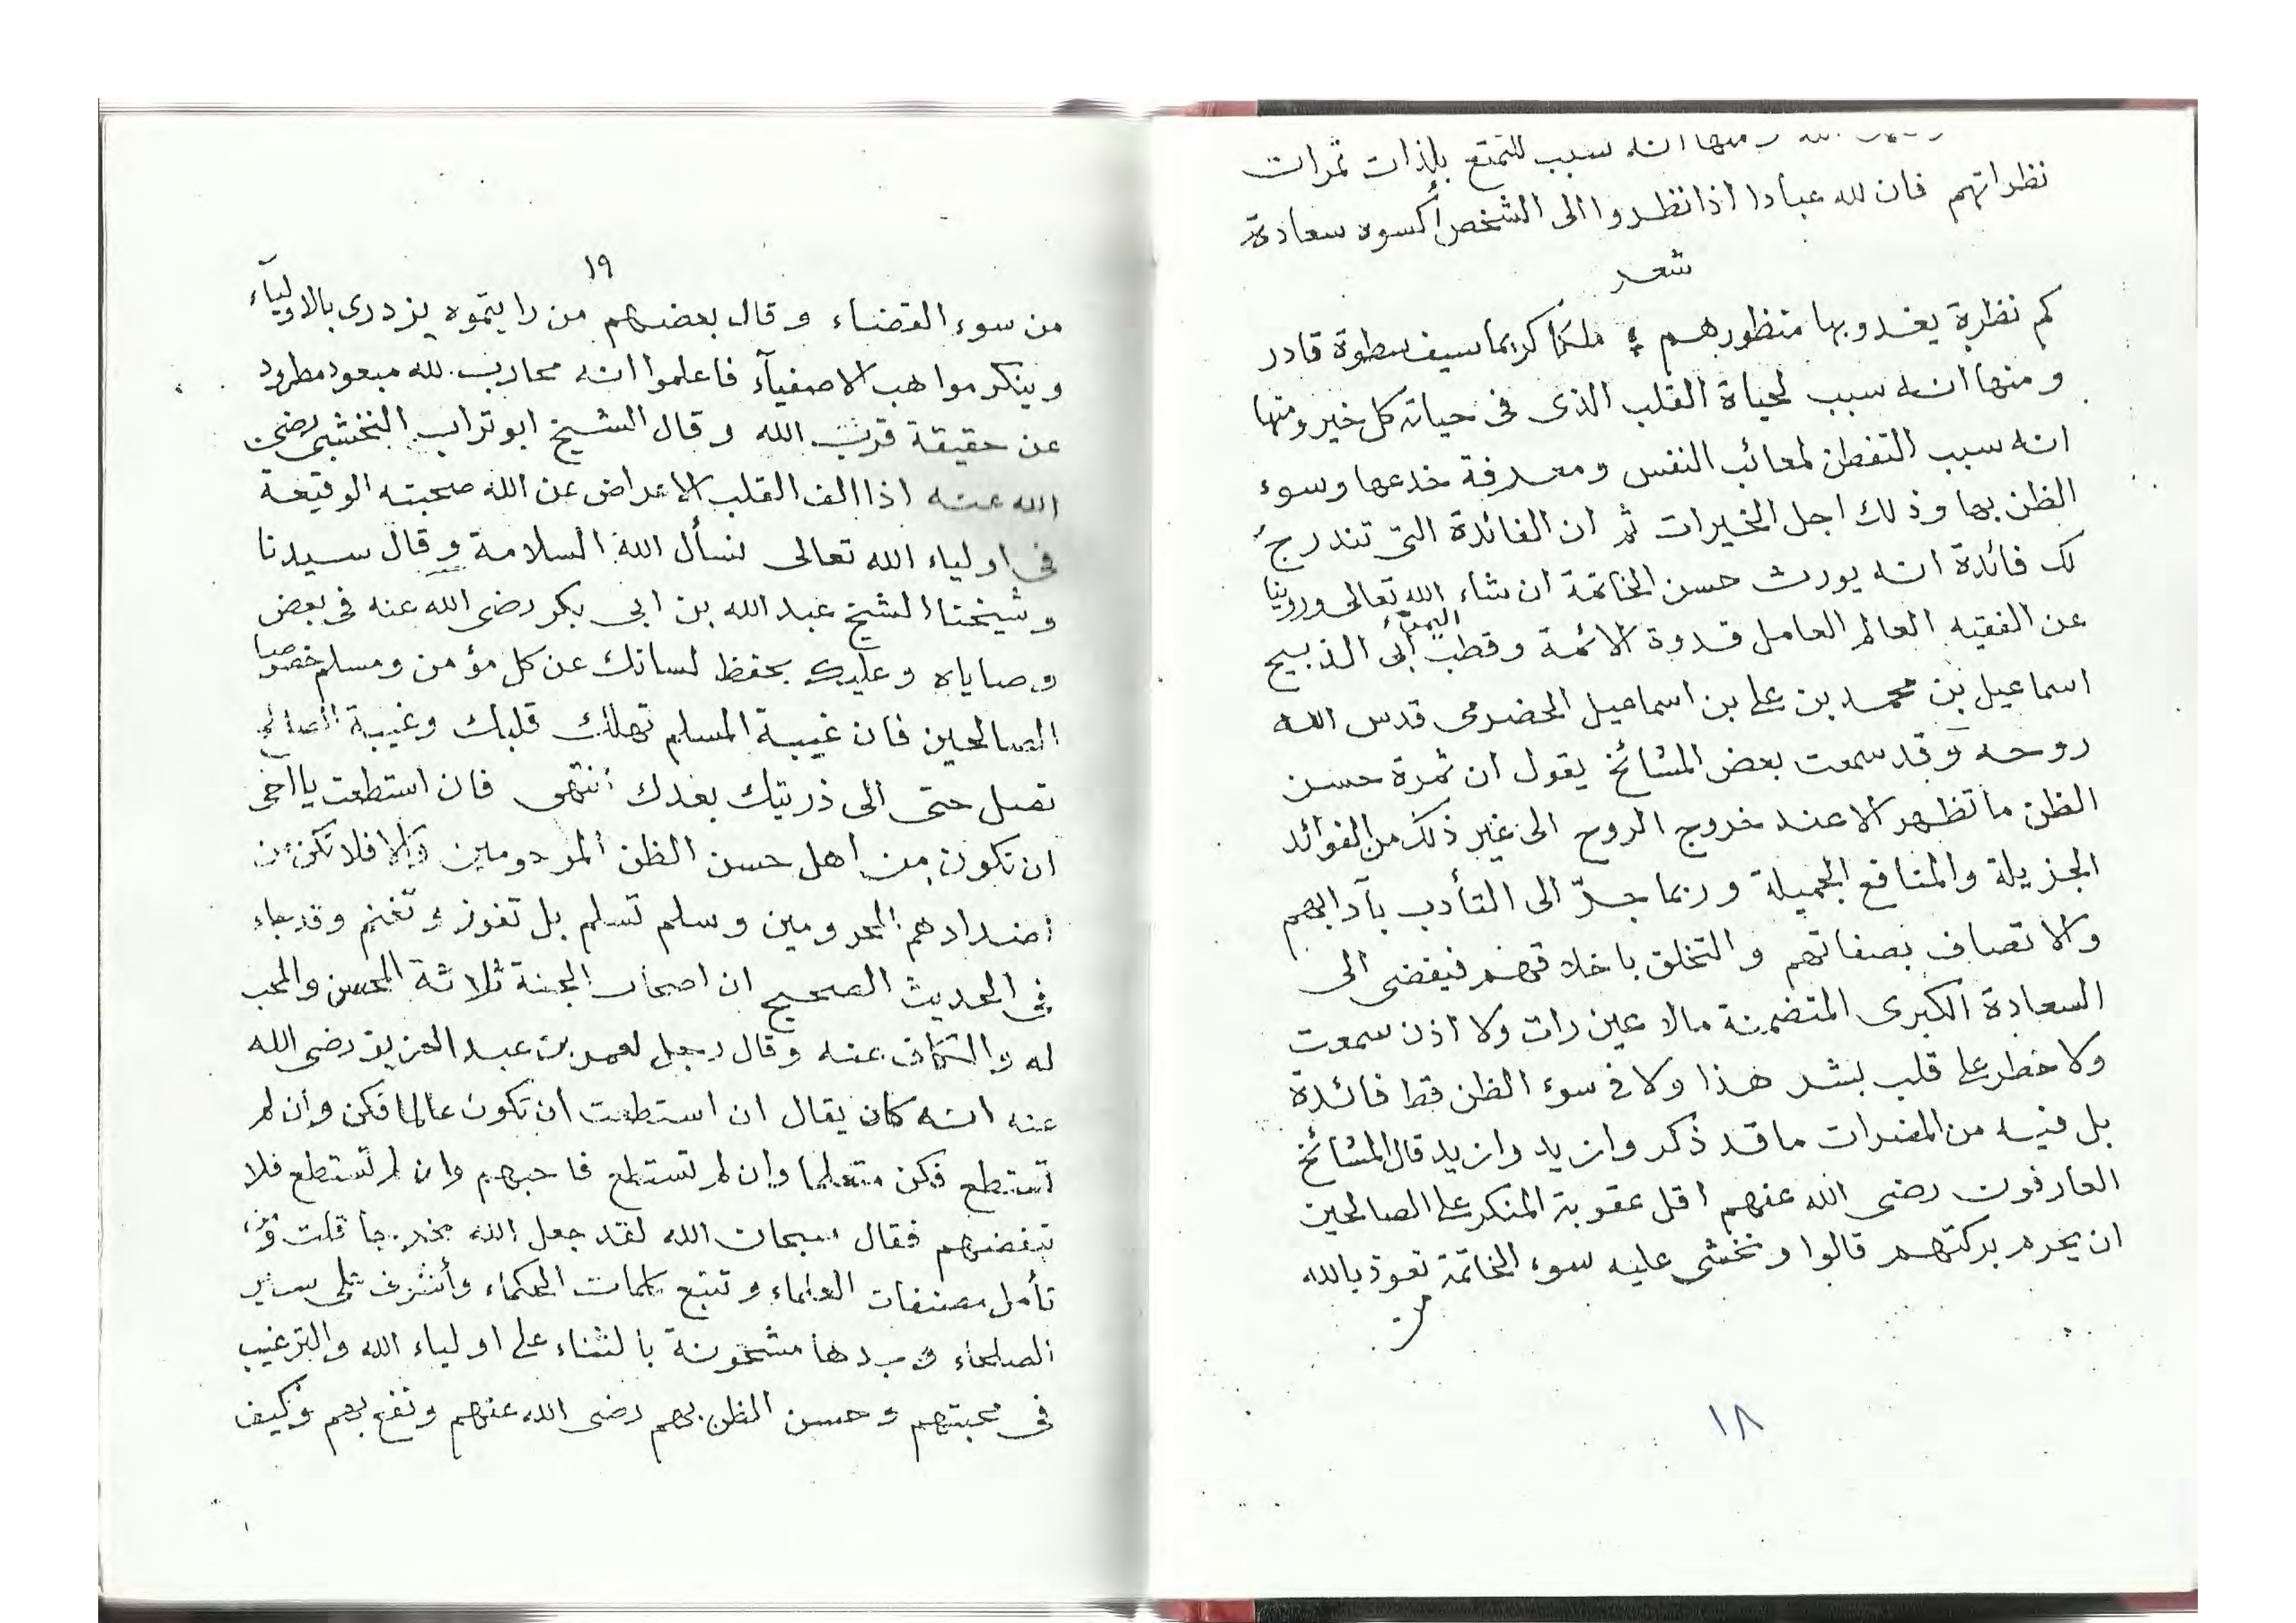 ومنها انه سبب للتمتع بلذات ثمرات
نظراتهم فان لله عبادا اذا نظروا الى الشخص أكسوه سعادة
شعر
كم نظرة يغدو بها منظورهم ؛ ملكا كريما سيف سطوة قادر
ومنها انه سبب لحياة القلب الذى فى حياته كل خير ومنها
انه سبب التفطن لمعائب النفس ومعرفة خدعها وسوء
الظن بها وذلك اجل الخيرات ثم ان الفائدة التى تندرج
لك فائدة انه يورث حسن الخاتمة ان شاء الله تعالى وروينا
عن الفقيه العالم العامل قدوة الائمة وقطب اليمن أبى الذبيح
اسماعيل بن محمد بن على بن اسماعيل الحضرمى قدس الله
روحه وقد سمعت بعض المشائخ يقول ان ثمرة حسن
الظن ما تظهر الا عند خروج الروح الى غير ذلك من الفوائد
الجزيلة والمنافع الجميلة وربما جرّ الى التأدب بآدابهم
والاتصاف بصفاتهم والتخلق باخلاقهم فيفضى الى
السعادة الكبرى المتضمنة مالا عين رات ولا اذن سمعت
ولا خطر على قلب بشر هذا ولا فى سوء الظن قط فائدة
بل فيه من المضرات ما قد ذكر وازيد وازيد قال المشائخ
العارفون رضى الله عنهم اقل عقوبة المنكر على الصالحين
ان يحرم بركتهم قالوا ونخشى عليه سوء الخاتمة نعوذ بالله
من
١٨
١٩
من سوء القضاء وقال بعضهم من رايتموه يزدرى بالاوليآء
وينكر مواهب الاصفيآء فاعلموا انه محارب لله مبعود مطرود
عن حقيقة قرب الله وقال الشيخ ابو تراب النخشبى رضى
الله عنه اذا الف القلب الاعراض عن الله صحبته الوقيعة
فى اولياء الله تعالى نسأل الله السلامة وقال سيدنا
وشيخنا الشيخ عبد الله بن ابى بكر رضى الله عنه فى بعض
وصاياه وعليك بحفظ لسانك عن كل مؤمن ومسلم خصوصا
الصالحين فان غيبة المسلم تهلك قلبك وغيبة الصالح
تصل حتى الى ذريتك بعدك انتهى فان استطعت يا اخى
ان تكون من اهل حسن الظن المرحومين والا فلا تكن من
اضدادهم المحرومين وسلم تسلم بل تفوز وتغنم وقد جاء
فى الحديث الصحيح ان اصحاب الجنة ثلاثة المحسن والمحب
له والكاف عنه وقال رجل لعمر بن عبد العزيز رضى الله
عنه انه كان يقال ان استطعت ان تكون عالما فكن وان لم
تستطع فكن متعلما وان لم تستطع فاحبهم وان لم تستطع فلا
تبغضهم فقال سبحان الله لقد جعل الله مخرجا قلت
تأمل مصنفات العلماء وتتبع كلمات الحكماء وأشرف على سير
الصلحاء مشحونة بالثناء على اولياء الله والترغيب
فى محبتهم وحسن الظن بهم رضى الله عنهم ونفع بهم وكيف